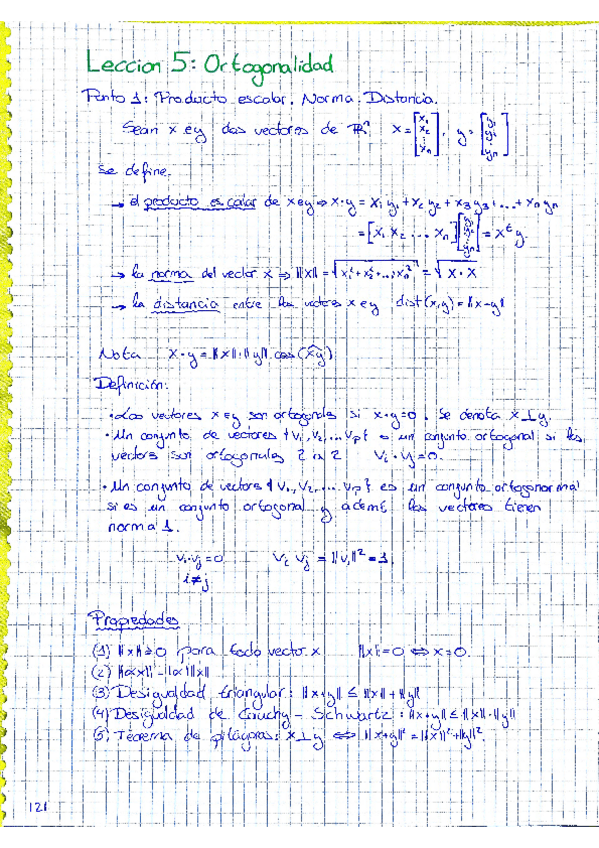 Leccion 5: Ortogonalidad
Punto 1: Producto escalar. Norma. Distancia.
Sean x e y dos vectores de ℝⁿ x = [x₁ x₂ ⋮ xₙ], y = [y₁ y₂ ⋮ yₙ]
Se define.
→ el producto escalar de x e y ⇒ x·y = x₁y₁ + x₂y₂ + x₃y₃ + ... + xₙyₙ
= [x₁ x₂ ... xₙ] [y₁ y₂ ⋮ yₙ] = xᵗ y.
→ la norma del vector x ⇒ ||x|| = √(x₁² + x₂² + ... + xₙ²) = √(x·x)
→ la distancia entre los vectores x e y dist(x,y) = ||x-y||
Nota x·y = ||x||·||y|| cos(x̂y)
Definición:
• Los vectores x e y son ortogonales si x·y=0. Se denota x⊥y.
• Un conjunto de vectores {v₁, v₂, ... vp} es un conjunto ortogonal si los
vectores son ortogonales 2 a 2 vᵢ·vⱼ=0.
• Un conjunto de vectores {v₁, v₂, ... vp} es un conjunto ortonormal
si es un conjunto ortogonal y además los vectores tienen
norma 1.
vᵢ·vⱼ=0 vᵢ vⱼ = ||vᵢ||² = 1.
i≠j
Propiedades
(1) ||x|| ≥ 0 para todo vector x ||x||=0 ⇔ x=0.
(2) ||αx|| = |α| ||x||
(3) Desigualdad triangular: ||x+y|| ≤ ||x|| + ||y||
(4) Desigualdad de Cauchy - Schwartz: ||x·y|| ≤ ||x||·||y||
(5) Teorema de pitágoras: x⊥y ⇔ ||x+y||² = ||x||² + ||y||²
121